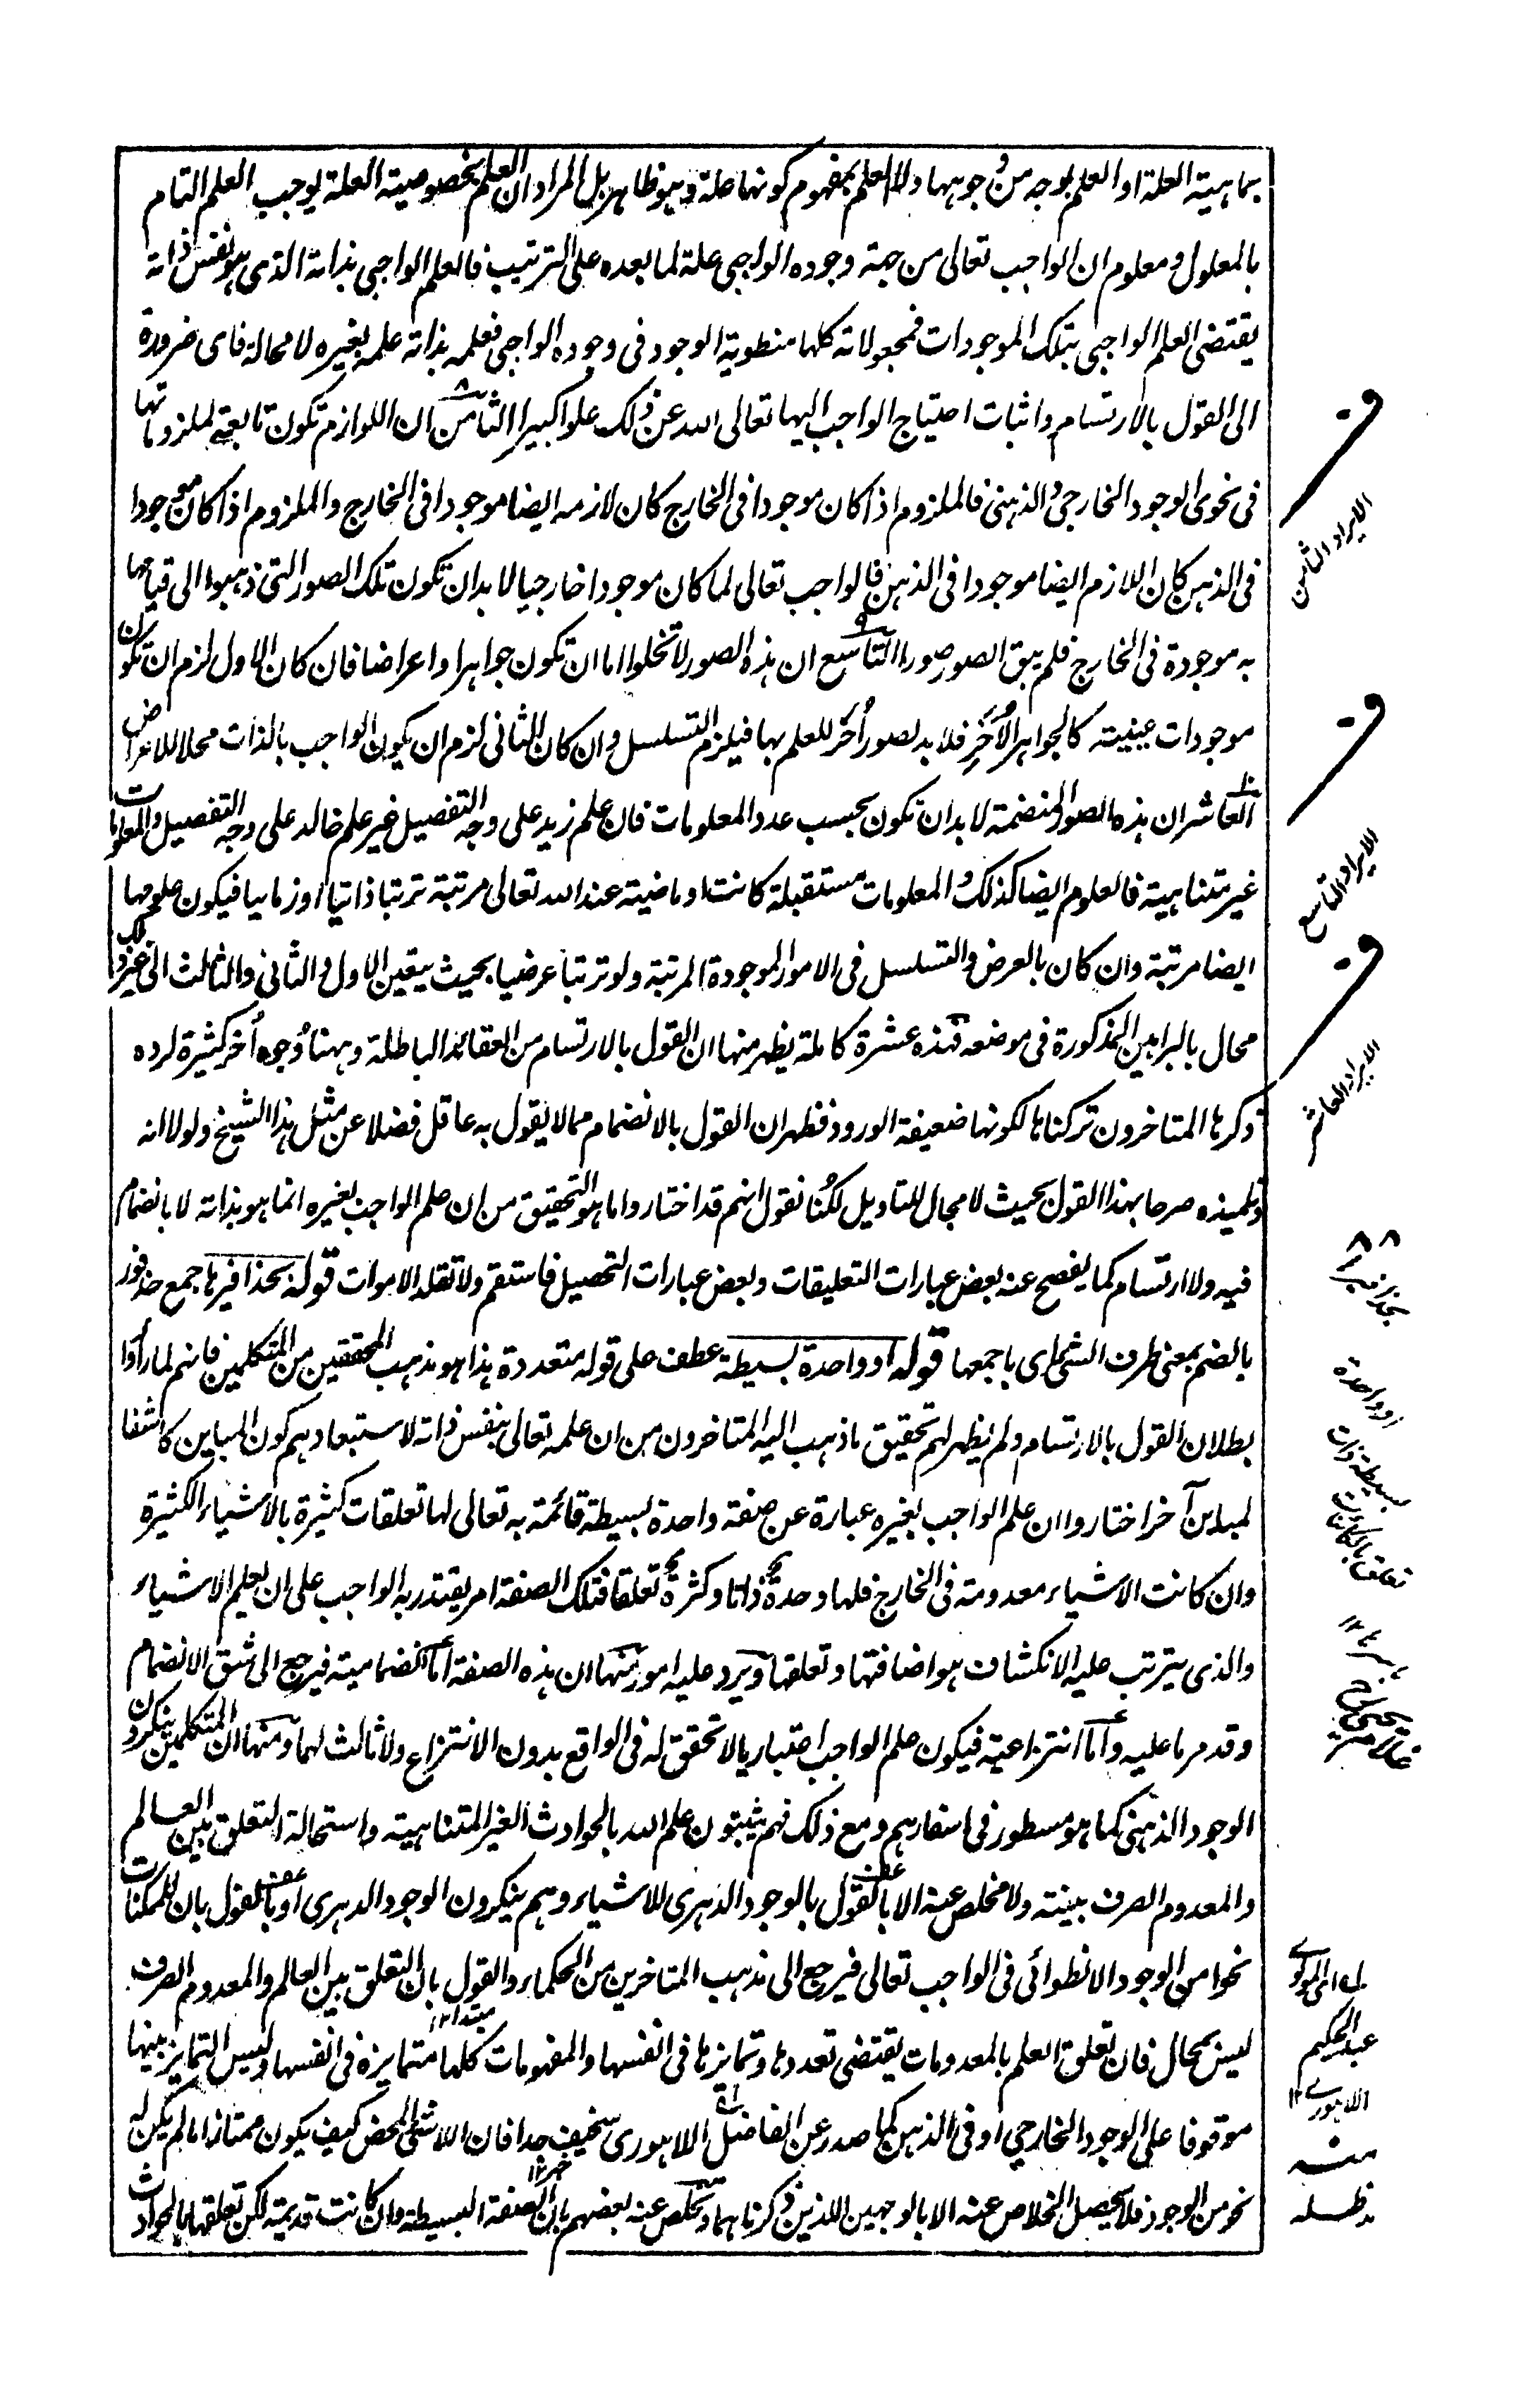 بماهية العلة او العلم بوجه من وجوهها ولا العلم بمفهوم كونها علة وهو ظاهر بل المراد ان العلم بخصوصية العلة يوجب العلم التام
بالمعلول ومعلوم ان الواجب تعالى من جهة وجوده الواجبي علة لما بعده على الترتيب فالعلم الواجبي بذاته الذى هو نفس ذاته
يقتضى العلم الواجبي بتلك الموجودات فمجعولاته كلها منطوية الوجود فى وجوده الواجبي فعلمه بذاته علمه بغيره لا محالة فاى ضرورة
الى القول بالارتسام واثبات احتياج الواجب اليها تعالى الله عن ذلك علوا كبيرا الثامن ان اللوازم تكون تابعة لملزوماتها
فى نحوى الوجود الخارجي والذهنى فالملزوم اذا كان موجودا فى الخارج كان لازمه ايضا موجودا فى الخارج والملزوم اذا كان موجودا
فى الذهن كان اللازم ايضا موجودا فى الذهن فالواجب تعالى لما كان موجودا خارجيا لابد ان تكون تلك الصور التى ذهبوا الى قيامها
به موجودة فى الخارج فلم يبق الصور صورا التاسع ان هذه الصور لا تخلوا اما ان تكون جواهر او اعراضا فان كان الاول لزم ان تكون
موجودات عينية كالجواهر الأُخَرِ فلا بد لصور أُخَر للعلم بها فيلزم التسلسل وان كان الثانى لزم ان يكون الواجب بالذات محلا للاعراض
العاشر ان هذه الصور المنضمة لابد ان تكون بحسب عدد المعلومات فان علم زيد على وجه التفصيل غير علم خالد على وجه التفصيل والمعلومات
غير متناهية فالعلوم ايضا كذلك والمعلومات مستقبلة كانت او ماضية عند الله تعالى مرتبة ترتبا ذاتيا او زمانيا فيكون علومها
ايضا مرتبة وان كان بالعرض والتسلسل فى الامور الموجودة المرتبة ولو ترتبا عرضيا بحيث يتعين الاول والثانى والثالث الى غير ذلك
محال بالبراهين المذكورة فى موضعه فهذه عشرة كاملة يظهر منها ان القول بالارتسام من العقائد الباطلة وههنا وُجوه أُخر كثيرة لرده
ذكرها المتاخرون تركناها لكونها ضعيفة الورود فظهر ان القول بالانضمام مما لا يقول به عاقل فضلا عن مثل هذا الشيخ ولولا انه
وتلميذه صرحا بهذا القول بحيث لا مجال للتاويل لكُنا نقول انهم قد اختاروا ما هو التحقيق من ان علم الواجب بغيره انما هو بذاته لا بانضمام
فيه ولا ارتسام كما يفصح عنه بعض عبارات التعليقات وبعض عبارات التحصيل فاستقم ولا تقلد الاموات قوله بحذافيرها جمع حذفور
بالضم بمعنى طرف الشئ اى باجمعها قوله او واحدة بسيطة عطف على قوله متعددة هذا هو مذهب المحققين من المتكلمين فانهم لما رأوا
بطلان القول بالارتسام ولم يظهر لهم تحقيق ما ذهب اليه المتاخرون من ان علمه تعالى بنفس ذاته لاستبعادهم كون المباين كاشفا
لمباين آخر اختاروا ان علم الواجب بغيره عبارة عن صفة واحدة بسيطة قائمة به تعالى لها تعلقات كثيرة بالاشياء الكثيرة
وان كانت الاشياء معدومة فى الخارج فلها وحدة ذاتا وكثرة تعلقا فتلك الصفة امر يقتدر به الواجب على ان يعلم الاشياء
والذى يترتب عليه الانكشاف هو اضافتها وتعلقها ويرد عليه امور منها ان هذه الصفة اما انضمامية فيرجع الى شق الانضمام
وقد مر ما عليه واما انتزاعية فيكون علم الواجب اعتباريا لا تحقق له فى الواقع بدون الانتزاع ولا ثالث لهما ومنها ان المتكلمين ينكرون
الوجود الذهنى كما هو مسطور فى اسفارهم ومع ذلك فهم يثبتون علم الله بالحوادث الغير المتناهية واستحالة التعلق بين العالم
والمعدوم الصرف بينة ولا مخلص عنه الا بالقول بالوجود الدهرى للاشياء وهم ينكرون الوجود الدهرى او بالقول بان للممكنات
نحوا من الوجود الانطوائى فى الواجب تعالى فيرجع الى مذهب المتاخرين من الحكماء والقول بان التعلق بين العالم والمعدوم الصرف
ليس بمحال فان تعلق العلم بالمعدومات يقتضى تعددها وتمايزها فى انفسها والمفهومات كلها متمايزة فى انفسها وليس التمايز بينها
موقوفا على الوجود الخارجي او فى الذهن كما صدر عن الفاضل اللاهورى سخيف جدا فان اللاشئ المحض كيف يكون ممتازا ما لم يكن له
نحو من الوجود فلا يحصل الخلاص عنه الا بالوجهين اللذين ذكرناهما وتخلص عنه بعضهم بان الصفة البسيطة وان كانت قديمة لكن تعلقها بالحوادث
الايراد الثامن
الايراد التاسع
الايراد العاشر
بحذافيرها
او واحدة
بسيطة ذات
تعلق بالكائنات
عبد الحكيم
اللاهورے ١٢
منه
مدظله